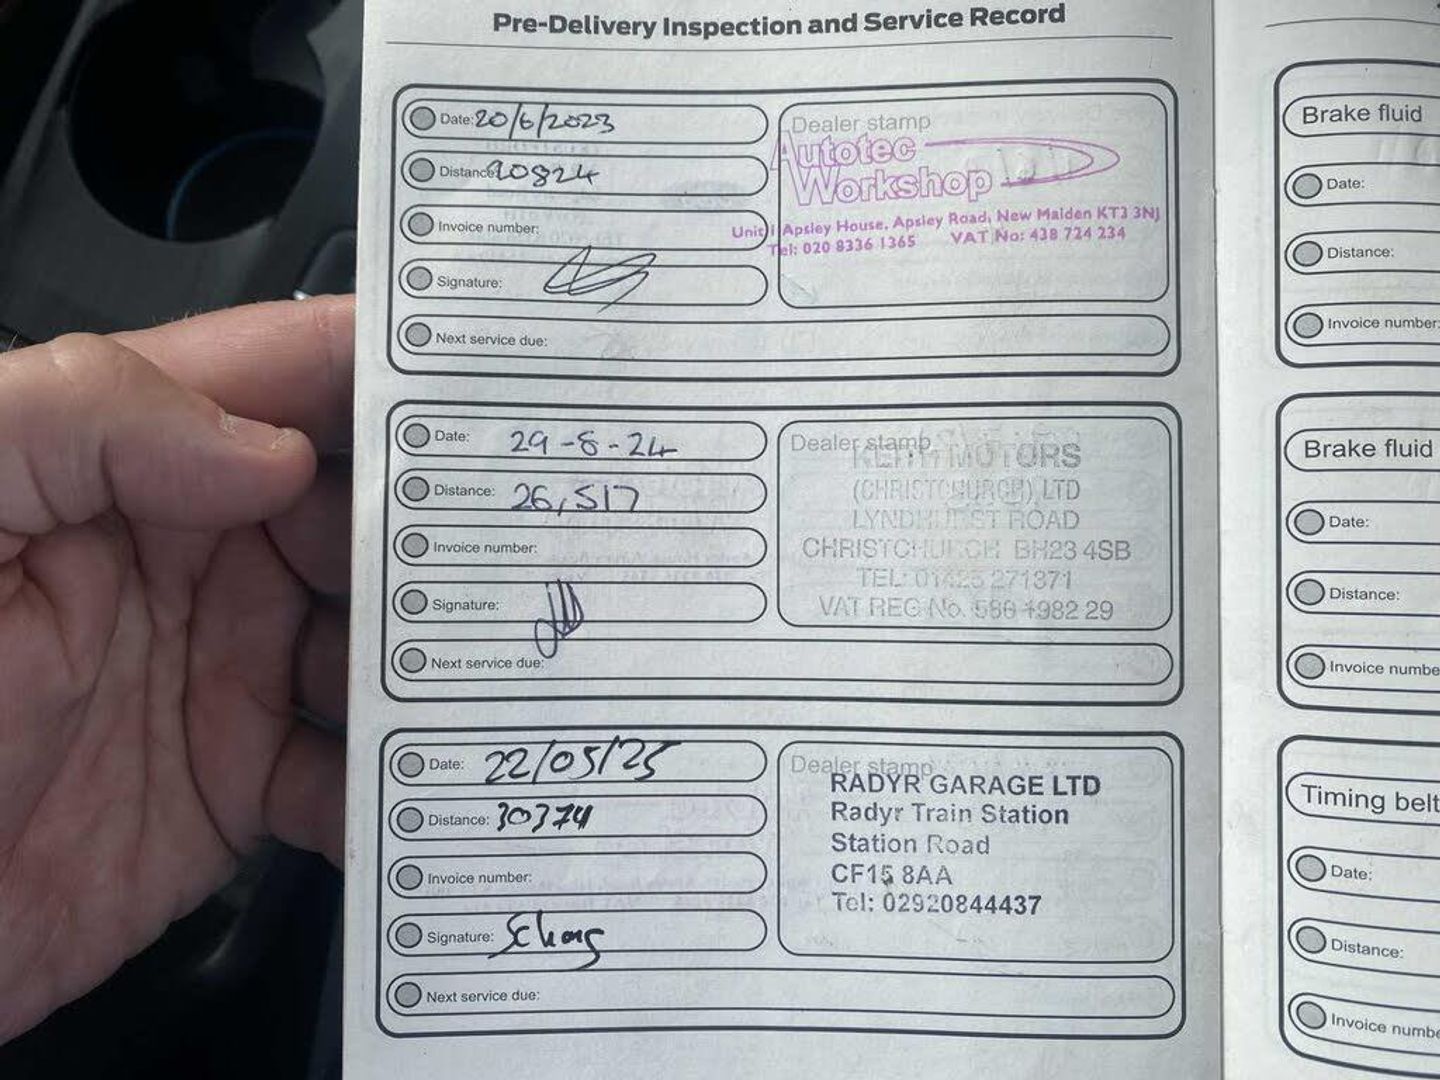 Pre-Delivery Inspection and Service Record
Date: 20/6/2023
Distance: 20824
Invoice number:
Signature:
Next service due:
Dealer stamp
Autotec
Workshop
Unit 1 Apsley House, Apsley Road, New Malden KT3 3NJ
Tel: 020 8336 1365 VAT No: 438 724 234
Date: 29-8-24
Distance: 26,517
Invoice number:
Signature:
Next service due:
Dealer stamp
KEITH MOTORS
(CHRISTCHURCH) LTD
LYNDHURST ROAD
CHRISTCHURCH BH23 4SB
TEL: 01425 271371
VAT REG No. 586 1982 29
Date: 22/05/25
Distance: 30374
Invoice number:
Signature:
Next service due:
Dealer stamp
RADYR GARAGE LTD
Radyr Train Station
Station Road
CF15 8AA
Tel: 02920844437
Brake fluid
Date:
Distance:
Invoice number:
Brake fluid
Date:
Distance:
Invoice numbe
Timing belt
Date:
Distance:
Invoice numbe